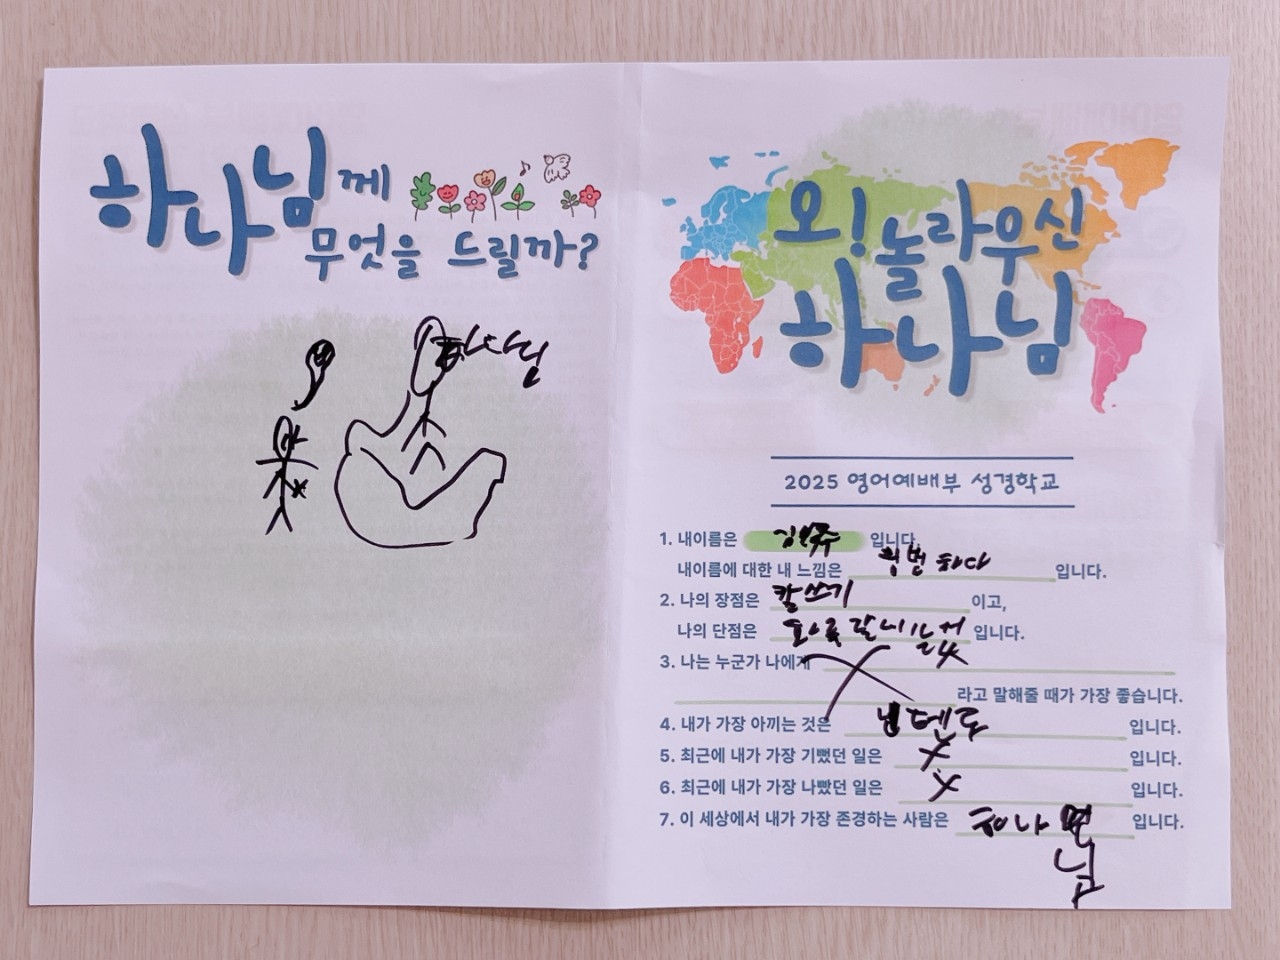 하나님께
무엇을 드릴까?
하나님
오! 놀라우신
하나님
2025 영어예배부 성경학교
1. 내이름은 입니다.
내이름에 대한 내 느낌은 평범하다 입니다.
2. 나의 장점은 칼쓰기 이고,
나의 단점은 입니다.
3. 나는 누군가 나에게
라고 말해줄 때가 가장 좋습니다.
4. 내가 가장 아끼는 것은 닌텐도 입니다.
5. 최근에 내가 가장 기뻤던 일은 X 입니다.
6. 최근에 내가 가장 나빴던 일은 X 입니다.
7. 이 세상에서 내가 가장 존경하는 사람은 하나님 입니다.